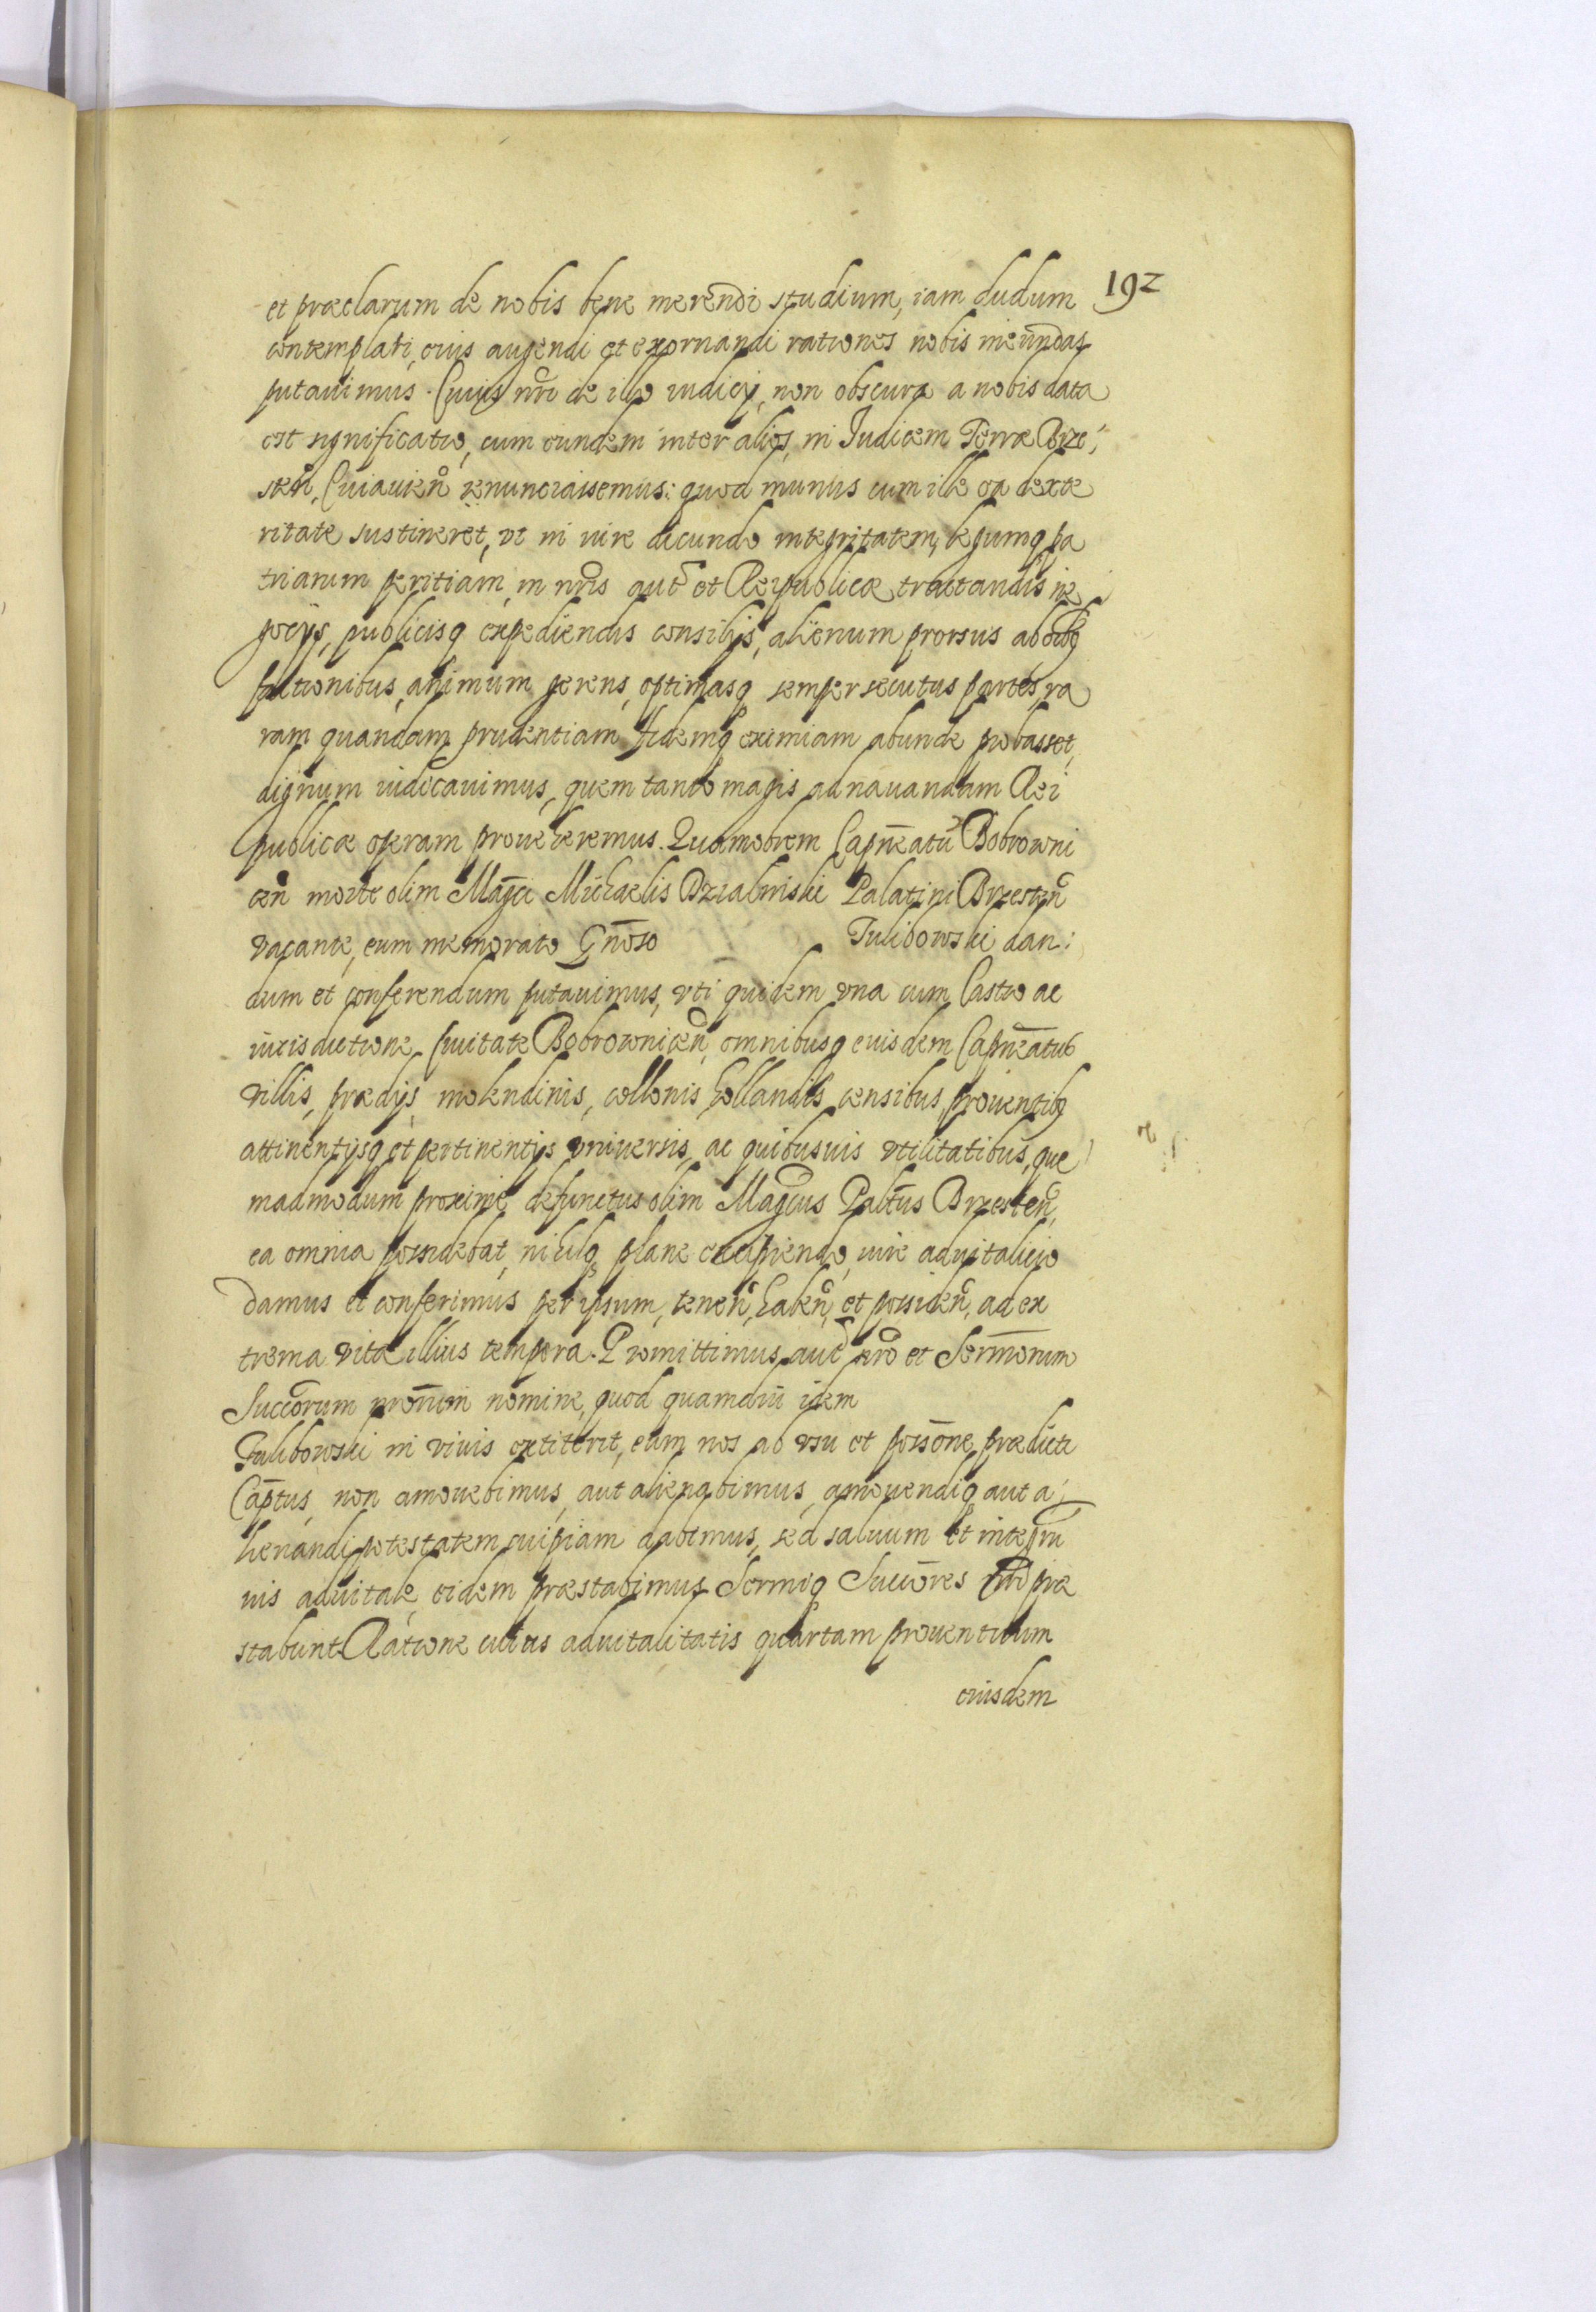 192
et præclarum de nobis bene merendi studium, iam dudum
contemplati, eius augendi et exornandi rationes nobis ineundas
putauimus. Cuius nri de illo iudicij, non obscura a nobis data
est significatio, cum eundem inter alios, in Iudicem Terræ Brze:
sten, Cuiauien renunciassemus: quod munus cum ille ea dexte
ritate sustineret, vt in iure dicundo integritatem, legumq pa
triarum peritiam, in nris aut et Reipublicæ tractandis ne
gocijs, publicisq expediendis consilijs, alienum prorsus ab oibq
factionibus, animum gerens, optimasq semper secutus partes, ra
ram quandam prudentiam fidemq eximiam abunde probasset,
dignum iudicauimus, quem tanto magis ad nauandam Rei
publicæ operam proueheremus. Quamobrem Capneatu Bobrowni
cen morte olim Magci Michaelis Dzialinski Palatini Brzesten
vacante, eum memorato Gnoso Tulibowski dan:
dum et conferendum putauimus, vti quidem vna cum Castro ac
iurisdictione, Ciuitate Bobrownicen, omnibusq eiusdem Capneatus
villis, prædijs, molendinis, collonis hollandis, censibus prouentibq
attinentijsq et pertinentijs vniuersis, ac quibusuis vtilitatibus, que
madmodum proxime defunctus olim Magcus Paltus Brzesten,
ea omnia possidebat, nihilq plane excipiendo, iure aduitalicio
damus et conferimus per ipsum, tenen, haben, et possiden, ad ex
trema vitæ illius tempora. Promittimus aut nro et Sermorum
Succorum nrorum nomine, quod quamdiu idem
Tulibowski in viuis extiterit, eum nos ab vsu et possone prædicti
Captus, non amouebimus, aut alienabimus, amouendiq aut a:
lienandi potestatem cuipiam dabimus, sed saluum et integru
ius aduitale, eidem præstabimus Sermiq Succores nri præ
stabunt. Ratione cuius aduitalitatis quartam prouentuum
eiusdem